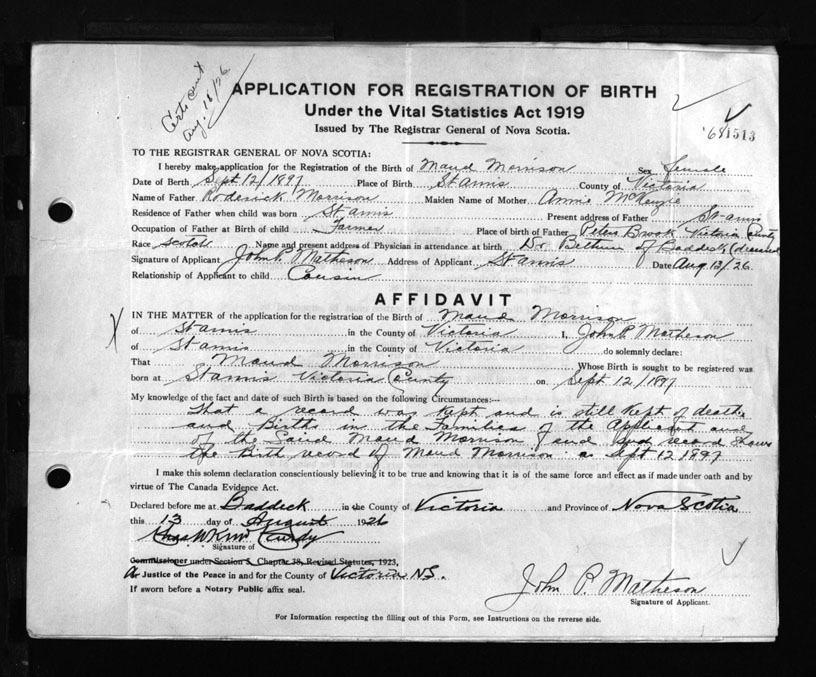 Cert sent
Aug. 16/26
APPLICATION FOR REGISTRATION OF BIRTH
Under the Vital Statistics Act 1919
Issued by The Registrar General of Nova Scotia.
TO THE REGISTRAR GENERAL OF NOVA SCOTIA:
I hereby make application for the Registration of the Birth of Maud Morrison Sex female
Date of Birth Sept 12/1897 Place of Birth St anns County of Victoria
Name of Father Roderick Morrison Maiden Name of Mother Annie McKenzie
Residence of Father when child was born St anns Present address of Father St anns
Occupation of Father at Birth of child Farmer Place of birth of Father Peters Brook Victoria County
Race Scotch Name and present address of Physician in attendance at birth Dr Bethune of Baddeck (deceased
Signature of Applicant John P. Matheson Address of Applicant St anns Date Aug 13/26.
Relationship of Applicant to child Cousin
AFFIDAVIT
IN THE MATTER of the application for the registration of the Birth of Maud Morrison
of St anns in the County of Victoria I, John P. Matheson
of St anns in the County of Victoria do solemnly declare:
That Maud Morrison Whose Birth is sought to be registered was
born at St anns Victoria County on Sept 12/1897
My knowledge of the fact and date of such Birth is based on the following Circumstances:—
That a record was kept and is still kept of deaths
and Births in the Families of the Applicant and
of the Said Maud Morrison and said record shows
the Birth record of Maud Morrison as Sept 12 1897
I make this solemn declaration conscientiously believing it to be true and knowing that it is of the same force and effect as if made under oath and by
virtue of The Canada Evidence Act.
Declared before me at Baddeck in the County of Victoria and Province of Nova Scotia
this 13 day of August 1926
Signature of
Commissioner under Section 5, Chapter 38, Revised Statutes, 1923,
A Justice of the Peace in and for the County of Victoria NS.
If sworn before a Notary Public affix seal.
John P. Matheson
Signature of Applicant.
For Information respecting the filling out of this Form, see Instructions on the reverse side.